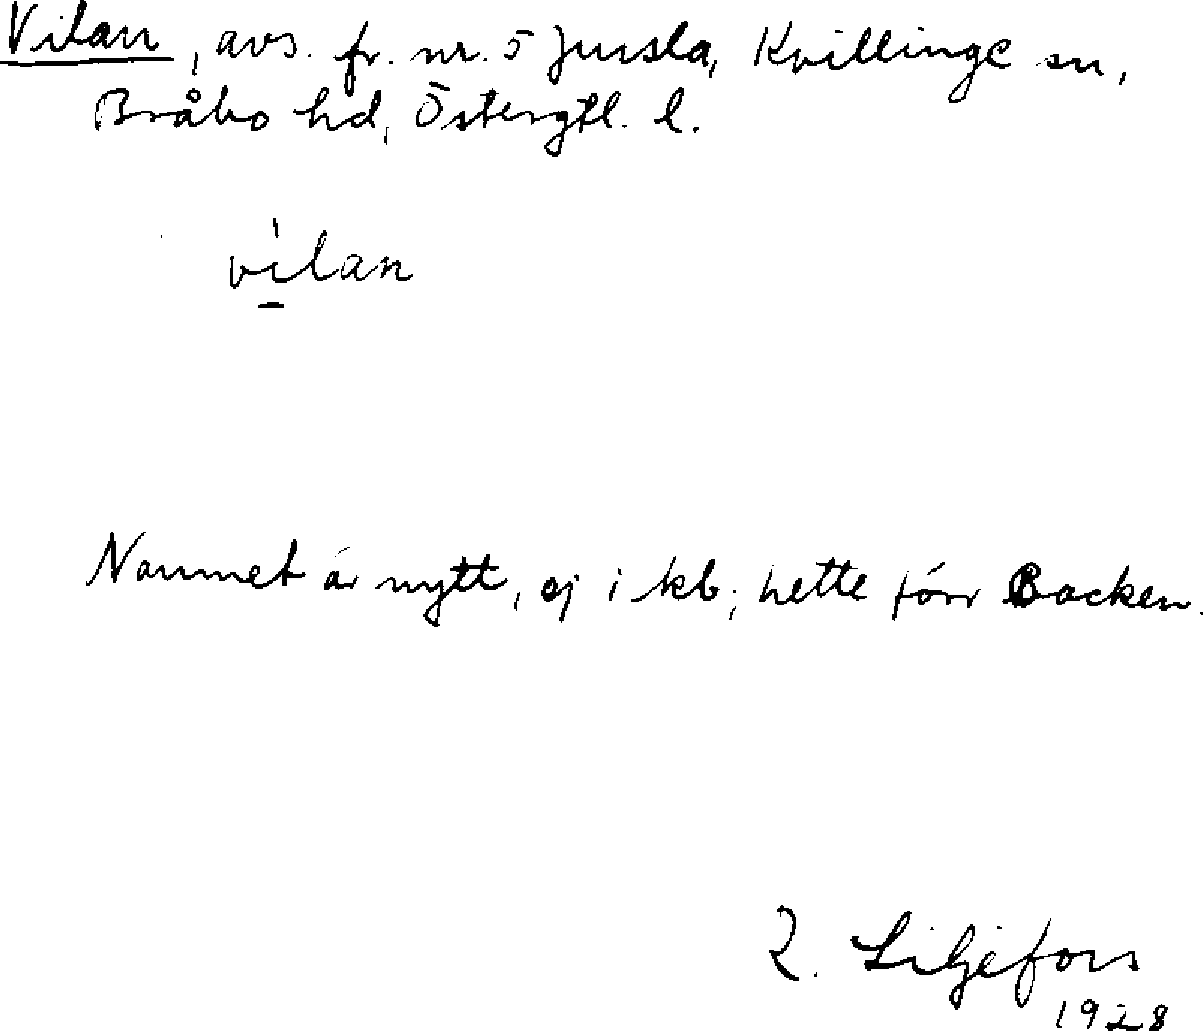 Vilan, avs. fr. nr. 5 Jursla, Kvillinge sn,
Bråbo hd, Östergtl. l.
vilan
Namnet är nytt, ej i kb; hette förr Backen.
Liljefors
1928